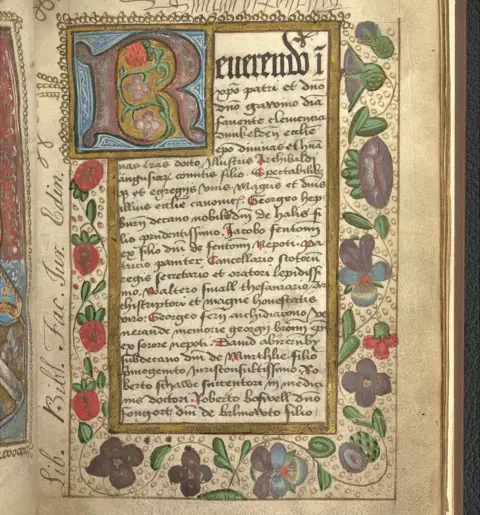 Reuerendo in
xpo patri et dno
dno gawino dia
fauente clemencia
dunkelden ecclie
epo diuinas et huma
nas lras docto Illustris Archibaldi
angusiae comitis filio Spectabilibus
et egregijs viris Magris et dnis
illius ecclie canonicis Georgeo hep
burn decano nobilis dni de halis fi
lio prudentissimo Jacobo fentoun
ex filio dni de fentoun Nepoti Pa
tricio painter Cancellario scotorum
regis secretario et oratori lepidissi
mo Waltero small thesaurario
et magne honestatis
viro Georgeo fern archidiacono ve
nerande memorie georgij broun epi
ex sorore nepoti Dauid abircrnby
subdecano dni de Murthlie filio
primogenito Jurisconsultissimo Ro
berto schawe succentori in medici
nis doctori Roberto boswell dno
fongort dni de balmowto filio
Lib. Bibl. Fac. Jur. Edin.